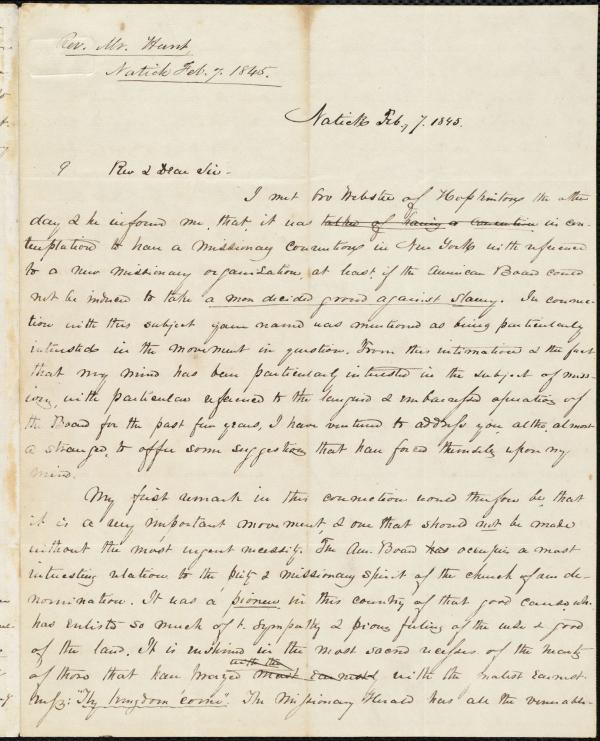 Rev. Mr. Hunt,
Natick Feb. 7. 1845.
Natick Feb, 7. 1845.
Rev & Dear Sir -
I met Bro Webster of Hopkinton the other
day & he informd me, that, it was talked of having a convention in con-
templation to have a missionary convention in New York with reference
to a new missionary organization, at least, if the American Board could
not be induced to take a more decided ground against Slavery. In connec-
tion with this subject your name was mentioned as being particularly
interested in the movement in question. From this intimation & the fact
that my mind has been particularly interested in the subject of miss-
ions, with particular reference to the languid & embarrassed operations of
the Board for the past few years, I have ventured to address you, altho, almost
a stranger, to offer some suggestions that have forced themselves upon my
mind.
My first remark in this connection would therefore be, that
it is a very important movement, & one that should not be made
without the most urgent necessity. The Am. Board has occupies a most
interesting relation to the piety & missionary spirit of the church of our de-
nomination. It was a pioneer in this country of that good cause wh.
has enlisted so much of t. sympathy & pious feeling of the wise & good
of the land. It is enshrined in the most sacred recesses of the hearts
of those that have prayed with the most earnest with the most earnest-
ness: "Thy kingdom come". The Missionary Herald has all the venerable-